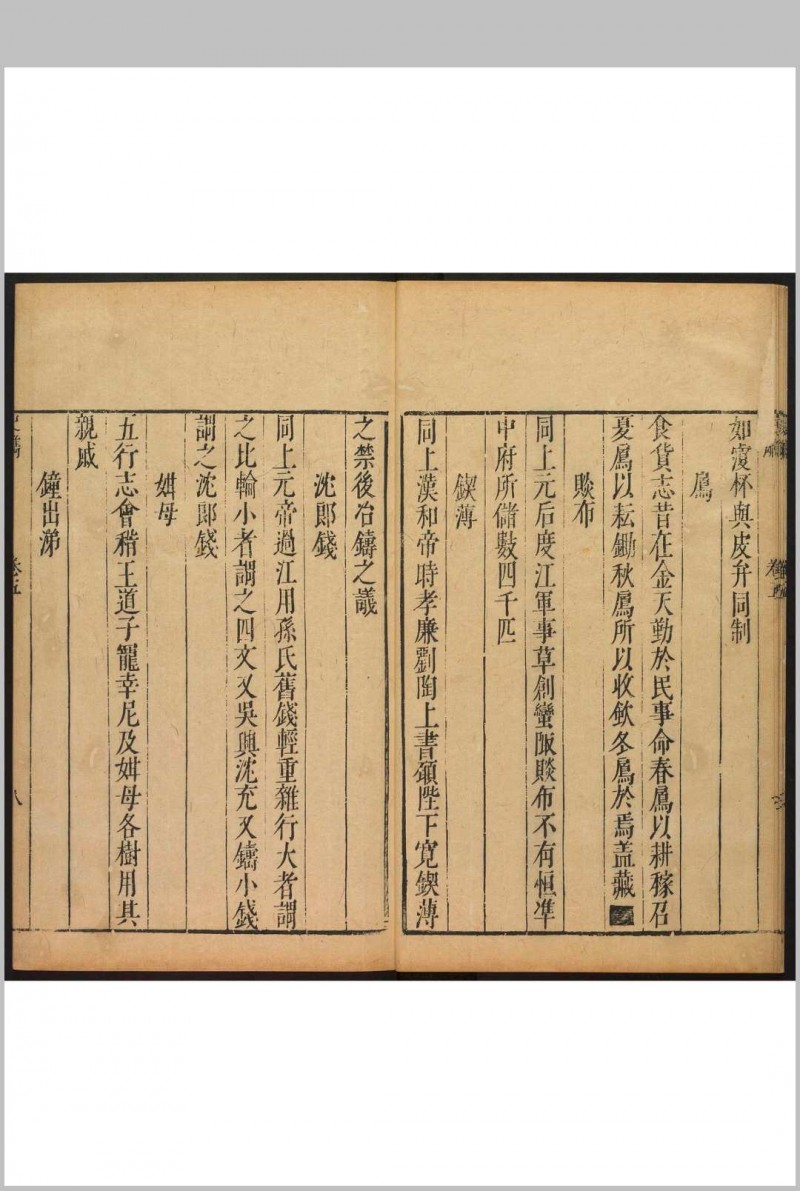 如覆杯與皮弁同制
鳸
食貨志昔在金天勤於民事命春鳸以耕稼召
夏鳸以耘鋤秋鳸所以收歛冬鳸於焉盖藏
賧布
同上元后度江軍事草創蠻陬賧布不有恒準
中府所儲數四千匹
鍥薄
同上漢和帝時孝廉劉陶上書願陛下寛鍥薄
之禁後冶鑄之議
沈郎錢
同上元帝過江用孫氏舊錢輕重雜行大者謂
之比輪小者謂之四文又吳興沈充又鑄小錢
謂之沈郎錢
㛐母
五行志會稽王道子寵幸尼及㛐母各樹用其
親戚
鐘出涕
卷五
八